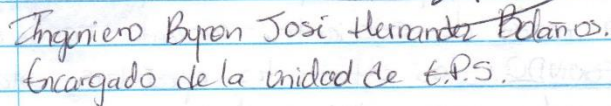 Ingeniero Byron José Hernandez Bolaños.
Encargado de la unidad de E.P.S.